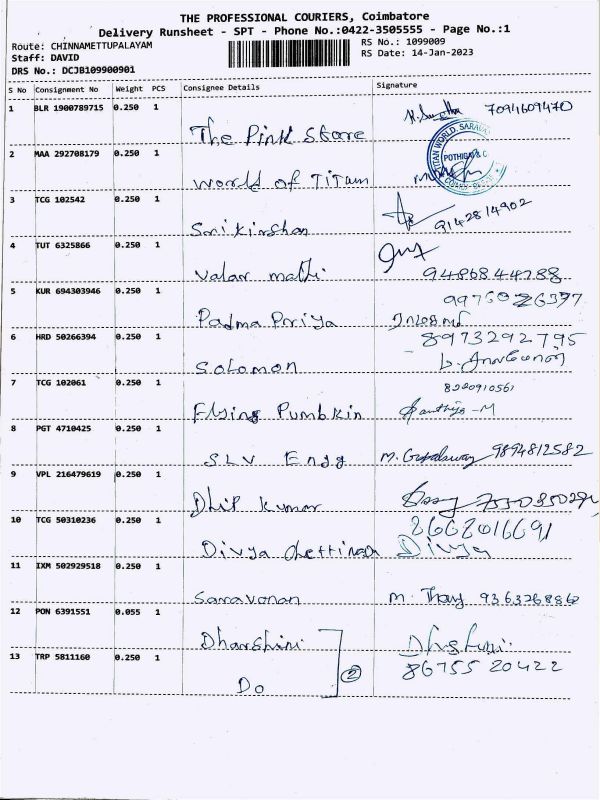 THE PROFESSIONAL COURIERS, Coimbatore
Delivery Runsheet - SPT - Phone No.:0422-3505555 - Page No.:1
Route: CHINNAMETTUPALAYAM
Staff: DAVID
DRS No.: DCJB109900901
RS No.: 1099009
RS Date: 14-Jan-2023
S No Consignment No Weight PCS Consignee Details Signature
1 BLR 1900789715 0.250 1 The Pink Store 7094609470
2 MAA 292708179 0.250 1 World of Titan
TITAN WORLD, SARAVA
POTHIGAI
3 TCG 102542 0.250 1 Srikirshan 9142814902
4 TUT 6325866 0.250 1 Valar mathi 9486844788
5 KUR 694303946 0.250 1 Padma Priya
6 HRD 50266394 0.250 1 Solomon 8973292795
7 TCG 102061 0.250 1 Flying Pumbkin 8220910561
8 PGT 4710425 0.250 1 SLV Engg 9894812582
9 VPL 216479619 0.250 1 Dhip Kumar
10 TCG 50310236 0.250 1 Divya chettinadu Divya
11 IXM 502929518 0.250 1 Saravanan M. 9363268862
12 PON 6391551 0.055 1 Dharshini
13 TRP 5811160 0.250 1 Do 2 86755 20422